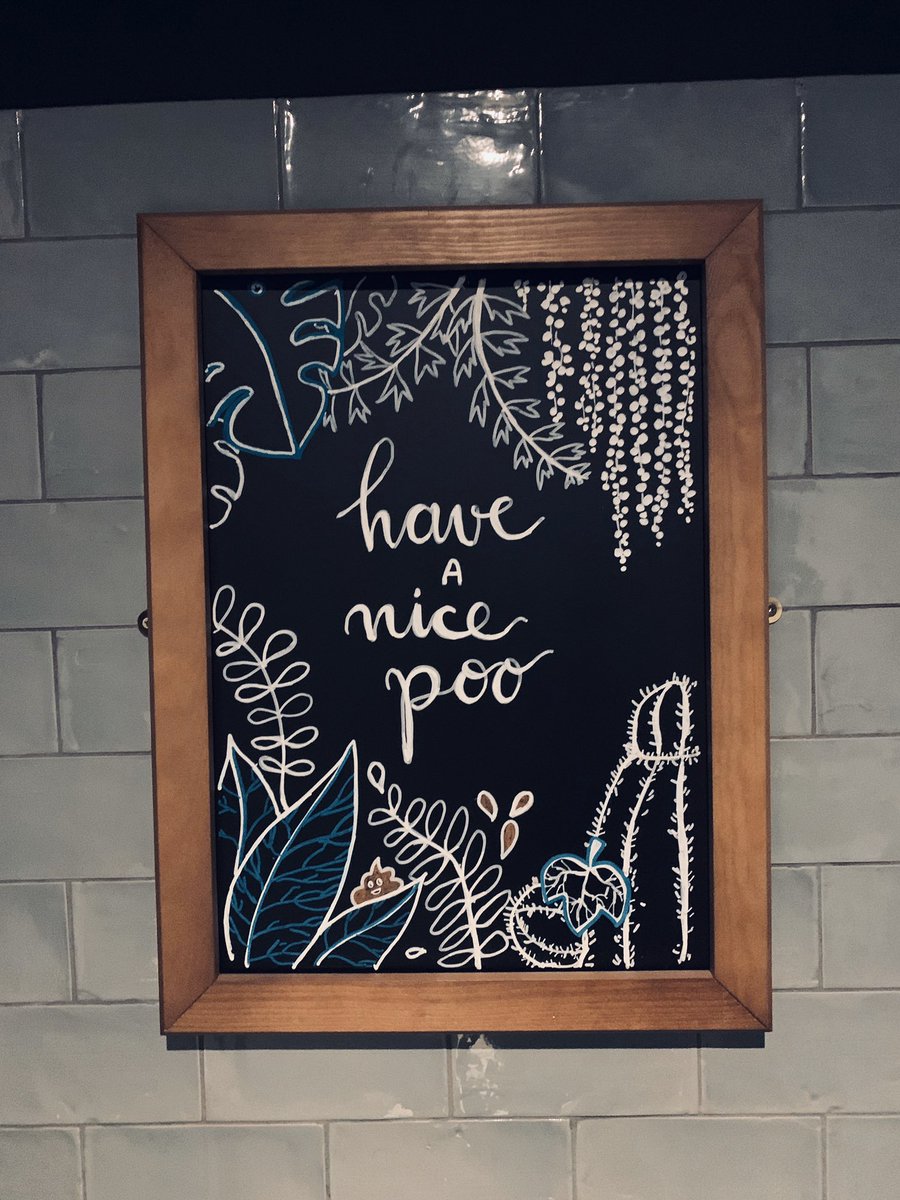 have
A
nice
poo